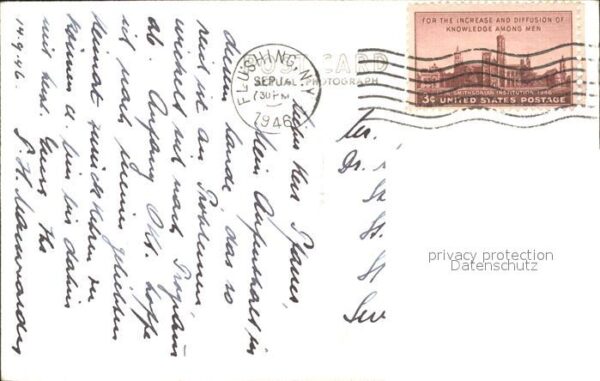 FOR THE INCREASE AND DIFFUSION OF
KNOWLEDGE AMONG MEN
SMITHSONIAN INSTITUTION 1946
3¢ UNITED STATES POSTAGE
POST CARD
PHOTOGRAPH
FLUSHING, N.Y.
SEP
7 30 PM
1946
Herr
Mein Aufenthalt in
diesem Lande, das so
reich ist an Problemen,
wickelt sich nach Programm
ab. Anfang Okt. hoffe
ich nach
Heimat zurückkehren zu
können u. bin bis dahin
mit herzl. Gruss Ihr
14.9.46
Dr.
St.
privacy protection
Datenschutz